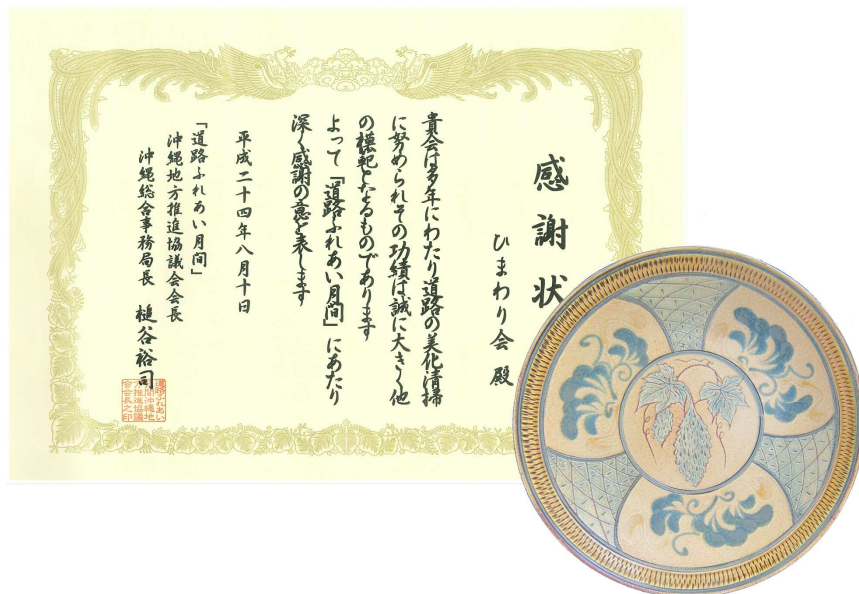 感謝状
ひまわり会殿
貴会は多年にわたり道路の美化清掃
に努められその功績は誠に大きく他
の模範となるものであります
よって「道路ふれあい月間」にあたり
深く感謝の意を表します
平成二十四年八月十日
「道路ふれあい月間」
沖縄地方推進協議会会長
沖縄総合事務局長 槌谷裕司
道路ふれあい
月間沖縄地
方推進協議
会会長之印